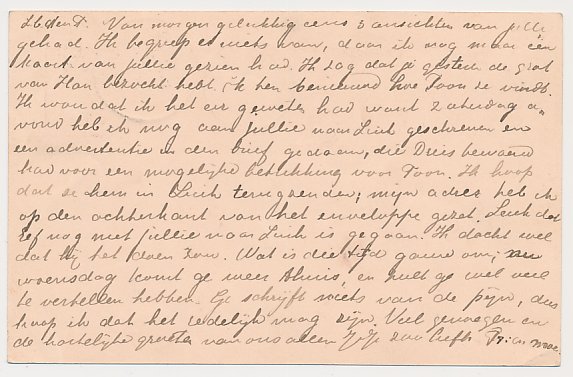 Van morgen gelukkig eens 5 ansichten van jullie
gehad. Ik begriep er niets van, daar ik nog maar één
kaart van jullie gezien had. Ik zag dat je gisteren de grot
van Han bezocht hebt, ik ben benieuwd hoe Toon ze vindt.
Ik wou dat ik het eer geweten had want Zaterdag a-
vond heb ik nog aan jullie naar Luik geschreven en
een advertentie in den brief gedaan, die Dries bewaard
had voor een mogelijke betrekking voor Toon. Ik hoop
dat ze hem in Luik terugzenden; mijn adres heb ik
op den achterkant van het enveloppe gezet. Leuk dat
nog met jullie naar Luik is gegaan. Ik dacht wel
dat hij het doen zou. Wat is die tijd gauw om; nu
woensdag komt ge weer thuis, en zult ge wel veel
te vertellen hebben. Ge schrijft niets van de pijn, dus
hoop ik dat het redelijk mag zijn. Veel genoegen en
de hartelijke groeten van ons allen